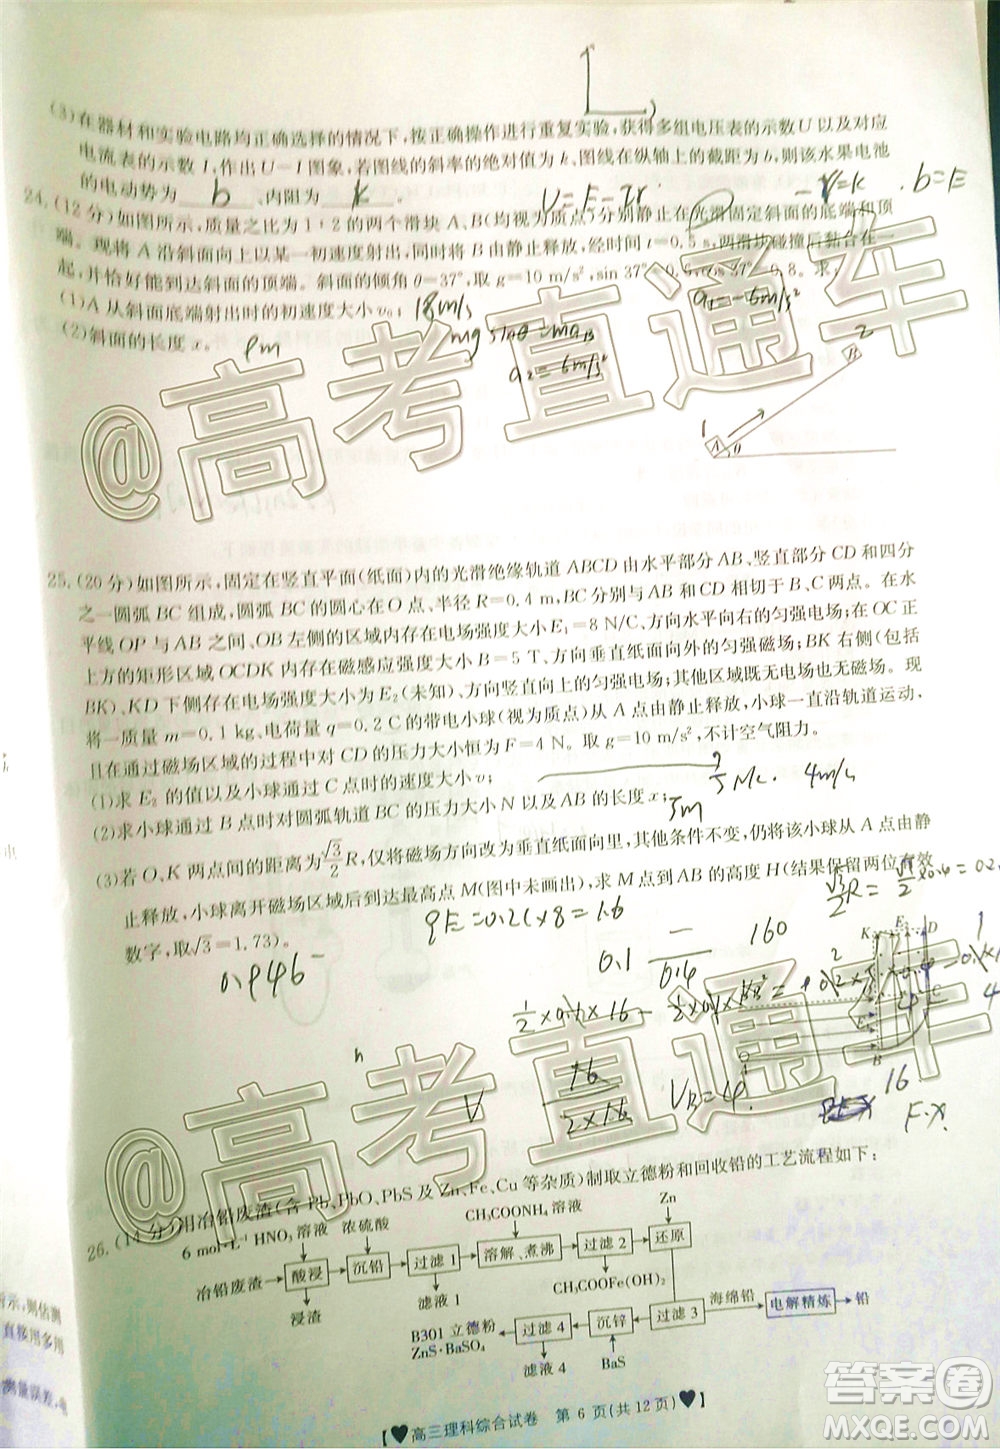 (3)在器材和实验电路均正确选择的情况下,按正确操作进行重复实验,获得多组电压表的示数 U 以及对应
电流表的示数 I,作出 U-I 图象,若图线的斜率的绝对值为 k,图线在纵轴上的截距为 b,则该水果电池
的电动势为 b 、内阻为 k 。
U=E-Ir
-r=k . b=E
24.(12 分)如图所示,质量之比为 1:2 的两个滑块 A、B(均视为质点)分别静止在光滑固定斜面的底端和顶
端。现将 A 沿斜面向上以某一初速度射出,同时将 B 由静止释放,经时间 t=0.5 s,两滑块碰撞后黏合在一
起,并恰好能到达斜面的顶端。斜面的倾角 θ=37°,取 g=10 m/s²,sin 37°=0.6,cos 37°=0.8。求:
(1)A 从斜面底端射出时的初速度大小 v₀; 18m/s
(2)斜面的长度 x。 9m
mg sinθ=ma
a₂=6m/s²
a₁=-6m/s²
2
B
1
A θ
25.(20 分)如图所示,固定在竖直平面(纸面)内的光滑绝缘轨道 ABCD 由水平部分 AB、竖直部分 CD 和四分
之一圆弧 BC 组成,圆弧 BC 的圆心在 O 点、半径 R=0.4 m,在 B、C 两点分别与 AB、CD 相切于 B、C 两点。在水
平线 OP 与 AB 之间、OB 左侧的区域内存在电场强度大小 E₁=8 N/C、方向水平向右的匀强电场;在 OC
上方的矩形区域 OCDK 内存在磁感应强度大小 B=5 T、方向垂直纸面向外的匀强磁场;BK 右侧(可达
BK)、KD 下侧存在电场强度大小为 E₂(未知)、方向竖直向上的匀强电场;其他区域既无电场也无磁场。现
将一质量 m=0.1 kg、电荷量 q=0.2 C 的带电小球(视为质点)从 A 点由静止释放,小球一直沿轨道运动,
且在通过磁场区域的过程中对 CD 的压力大小恒为 F=4 N。取 g=10 m/s²,不计空气阻力。
(1)求 E₂ 的值以及小球通过 C 点时的速度大小 v;
4m/s
(2)求小球通过 B 点时对圆弧轨道 BC 的压力大小 N 以及 AB 的长度 x;
(3)若 O、K 两点间的距离为√3/2 R,仅将磁场方向改为垂直纸面向里,其他条件不变,仍将该小球从 A 点由静
止释放,小球离开磁场区域后到达最高点 M(图中未画出),求 M 点到 AB 的高度 H(结果保留两位有效
数字,取√3=1.73)。
qE=0.2×8=1.6
0.946
0.1
0.4
160
K E₂ D
C
B
16
V
16
2×16
F·x
26.(14 分)用冶铅废渣(含 Pb、PbO、PbS 及 Zn、Fe、Cu 等杂质)制取立德粉和回收铅的工艺流程如下:
6 mol·L⁻¹ HNO₃ 溶液 浓硫酸 CH₃COONH₄ 溶液 Zn
冶铅废渣 酸浸 沉铅 过滤 1 溶解、煮沸 过滤 2 还原
浸渣 滤液 1 CH₃COOFe(OH)₂
B301 立德粉 过滤 4 沉锌 过滤 3 海绵铅 电解精炼 铅
ZnS·BaSO₄ 滤液 4 BaS
【♥高三理科综合试卷 第 6 页(共 12 页)♥】
@高考直通车
@高考直通车
答案圈